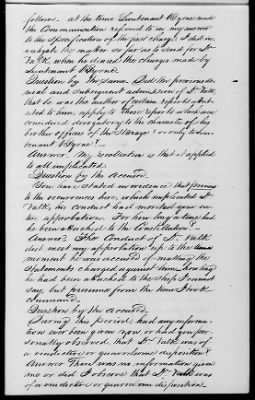 follows. at the time Lieutenant O'Byrne made
the Communication referred to in my answer
to the specification of the first charge, I did in-
vestigate the matter so far as to send for Lt.
Valk, when he denied the charge made by
Lieutenant O'Byrne.
Question by the same. Did the previous de-
nial and subsequent admission of Lt. Valk,
that he was the author of certain reports
apply to those reports which were
considered derogatory to the character of his
brother officers of the Steerage or only to Lieu-
tenant O'Byrne?
Answer. My recollection is that it applied
to all implicated.
Question by the Accused.
You have stated in evidence that previous
to the occurrences here, which implicated Lt.
Valk, his conduct had merited your en-
tire approbation. For how long a time had
he been attached to the Constellation?
Answer. The Conduct of Lt. Valk
did meet my approbation up to the
moment he was accused of making the
statements charged against him. how long
he had been attached to the ship I cannot
say, but presume from the time I took
command.
Question by the Accused.
During this period, had any informa-
tion ever been given you or had you per-
sonally observed that Lt. Valk was of
a vindictive or quarrelsome disposition?
Answer There was no information given
me or did I observe that Lt. Valk was
of a vindictive or quarrelsome disposition.